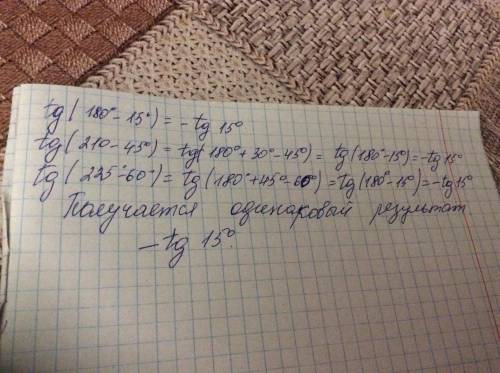 tg(180°-15°) = -tg 15°
tg(210-45°) = tg(180°+30°-45°) = tg(180°-15°) = -tg 15°
tg(225°-60°) = tg(180°+45°-60°) = tg(180°-15°) = -tg 15
Получается одинаковый результат
-tg 15°.